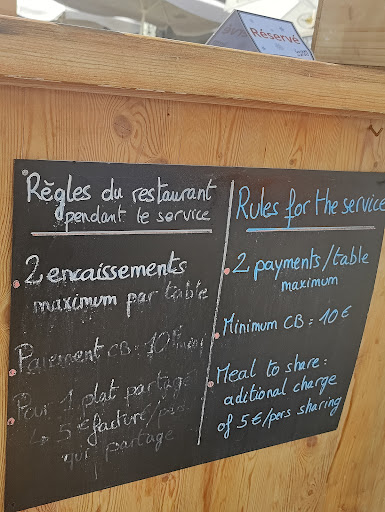 Réservé
Règles du restaurant
pendant le service
2 encaissements
maximum par table
Paiement CB = 10€
Pour 1 plat partagé
↳ 5€ facturé/pers
qui partage
Rules for the service
2 payments/table
maximum
Minimum CB = 10€
Meal to share :
aditional charge
of 5€/pers sharing